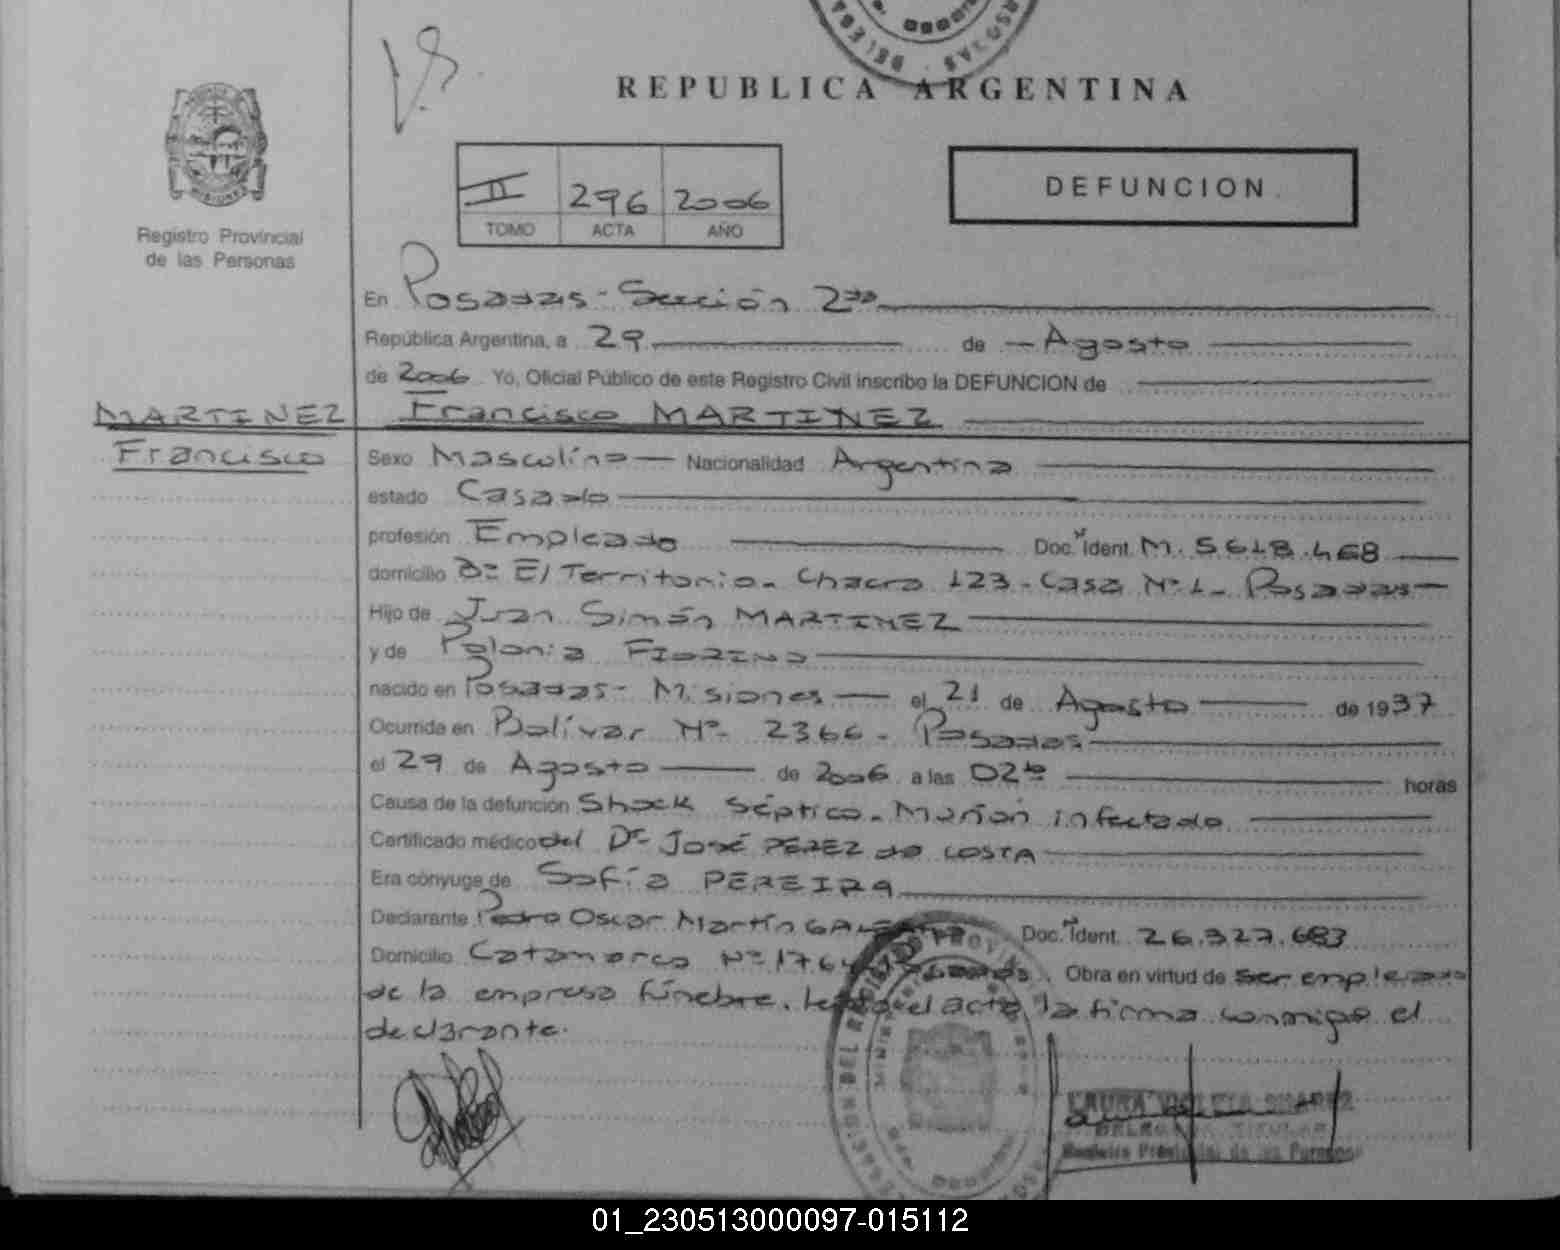 REPUBLICA ARGENTINA
II 296 2006
TOMO ACTA AÑO
DEFUNCION
Registro Provincial
de las Personas
En Posadas - Sección 2da
República Argentina, a 29 de Agosto
de 2006 Yo, Oficial Público de este Registro Civil inscribo la DEFUNCION de
MARTINEZ Francisco MARTINEZ
Francisco
Sexo Masculino Nacionalidad Argentina
estado Casado
profesión Empleado Doc. Ident. M. 5.618.468
domicilio Bº El Territorio - Chacra 123 - Casa Nº 1 - Posadas
Hijo de Juan Simón MARTINEZ
y de Polonia FIORINO
nacido en Posadas - Misiones el 21 de Agosto de 1937
Ocurrida en Bolívar Nº 2366 - Posadas
el 29 de Agosto de 2006 a las 02 horas
Causa de la defunción Shock Séptico - Muñón infectado
Certificado médico del Dr José PEREZ do COSTA
Era cónyuge de Sofía PEREIRA
Declarante Pedro Oscar Martín Doc. Ident. 26.327.683
Domicilio Catamarca Nº Posadas. Obra en virtud de ser empleado
de la empresa fúnebre. Leída el acta, la firma conmigo el
declarante.
LAURA VIOLETA SUAREZ
DELEGADA TITULAR
Registro Provincial de las Personas
01_230513000097-015112